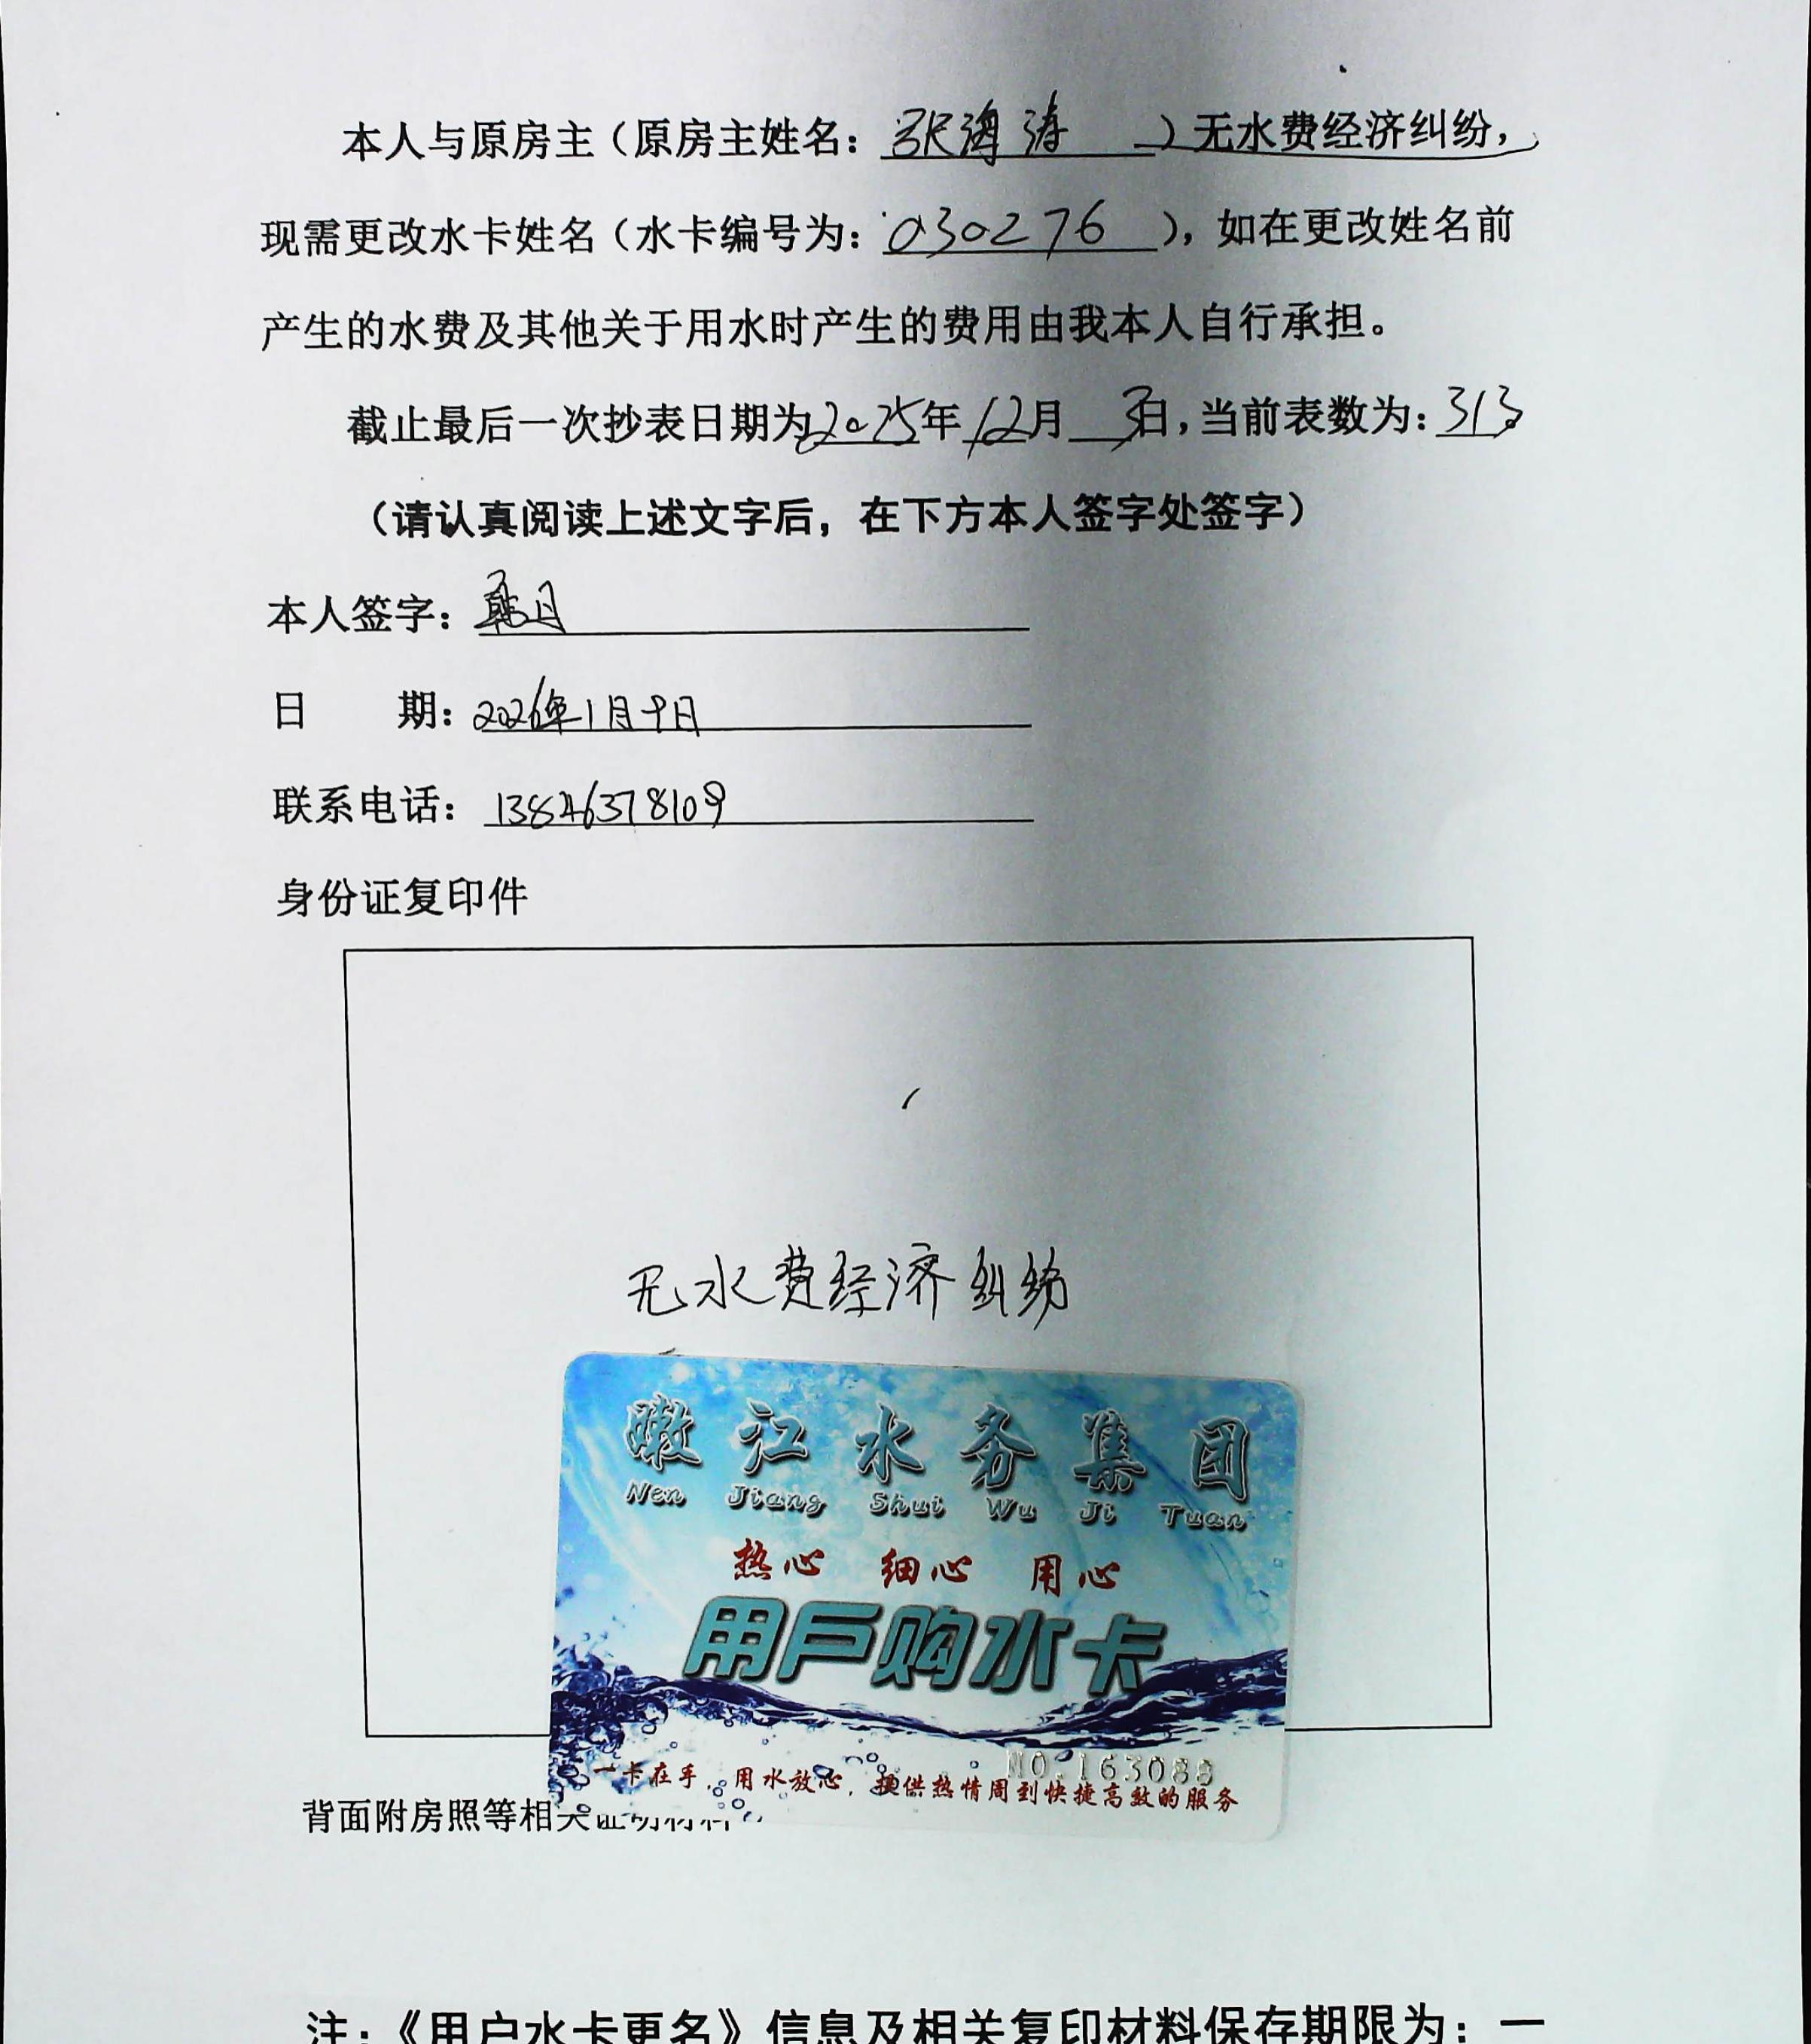 本人与原房主（原房主姓名：张海涛）无水费经济纠纷，
现需更改水卡姓名（水卡编号为：030276），如在更改姓名前
产生的水费及其他关于用水时产生的费用由我本人自行承担。
截止最后一次抄表日期为2025年12月3日，当前表数为：313
（请认真阅读上述文字后，在下方本人签字处签字）
本人签字：
日 期：2026年1月9日
联系电话：13846378109
身份证复印件
无水费经济纠纷
嫩江水务集团
Nen Jiang Shui Wu Ji Tuan
热心 细心 用心
用户购水卡
NO.163088
一卡在手，用水放心，提供热情周到快捷高效的服务
背面附房照等相关证明材料
注：《用户水卡更名》信息及相关复印材料保存期限为：一